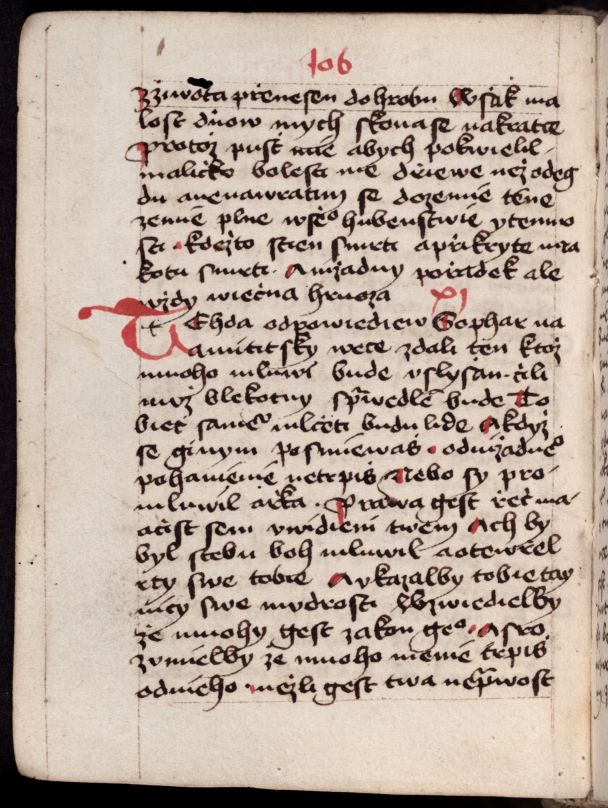 Iob
Zziwota přenesen dohrobu Wsſak ma
loſt dňow mych ſkonaſe nakratce
Protož puſt mie abych pokwielil
maličko boleſti me dřiewe nez odeg
du anenawratim ſe dozemie temne
zemie plne wſſeᵒ hubenſtwie ytemno
ſti kdežto ſtien ſmrti apřikryte mra
kotu ſmrti Anižadny pořadek ale
wždy wiečna hruoza
XI
Tehda odpowiediew Sophar na
amititſky wece zdali ten ktož
mnoho mluwi bude vslyſan čili
muž blekotny ſprawedlen bude To
bieť ſameᵘ mlčeti budu lide Akdyž
ſe ginym poſmiewaš odnižadneᵒ
pohanienie netrpiš Nebo ſy pro
mluwil arka Prawa geſt řeč ma
ačiſt ſem vwidieni twem Ach by
byl ſtebu boh mluwil aotewřel
rty ſwe tobie Aukazalby tobie tay
nicy ſwe mudroſti Wzwiedielby
že mnohy geſt zakon geᵒ Aſro
zumielby že mnoho menie trpiš
odnieho nežli geſt twa neprawoſt